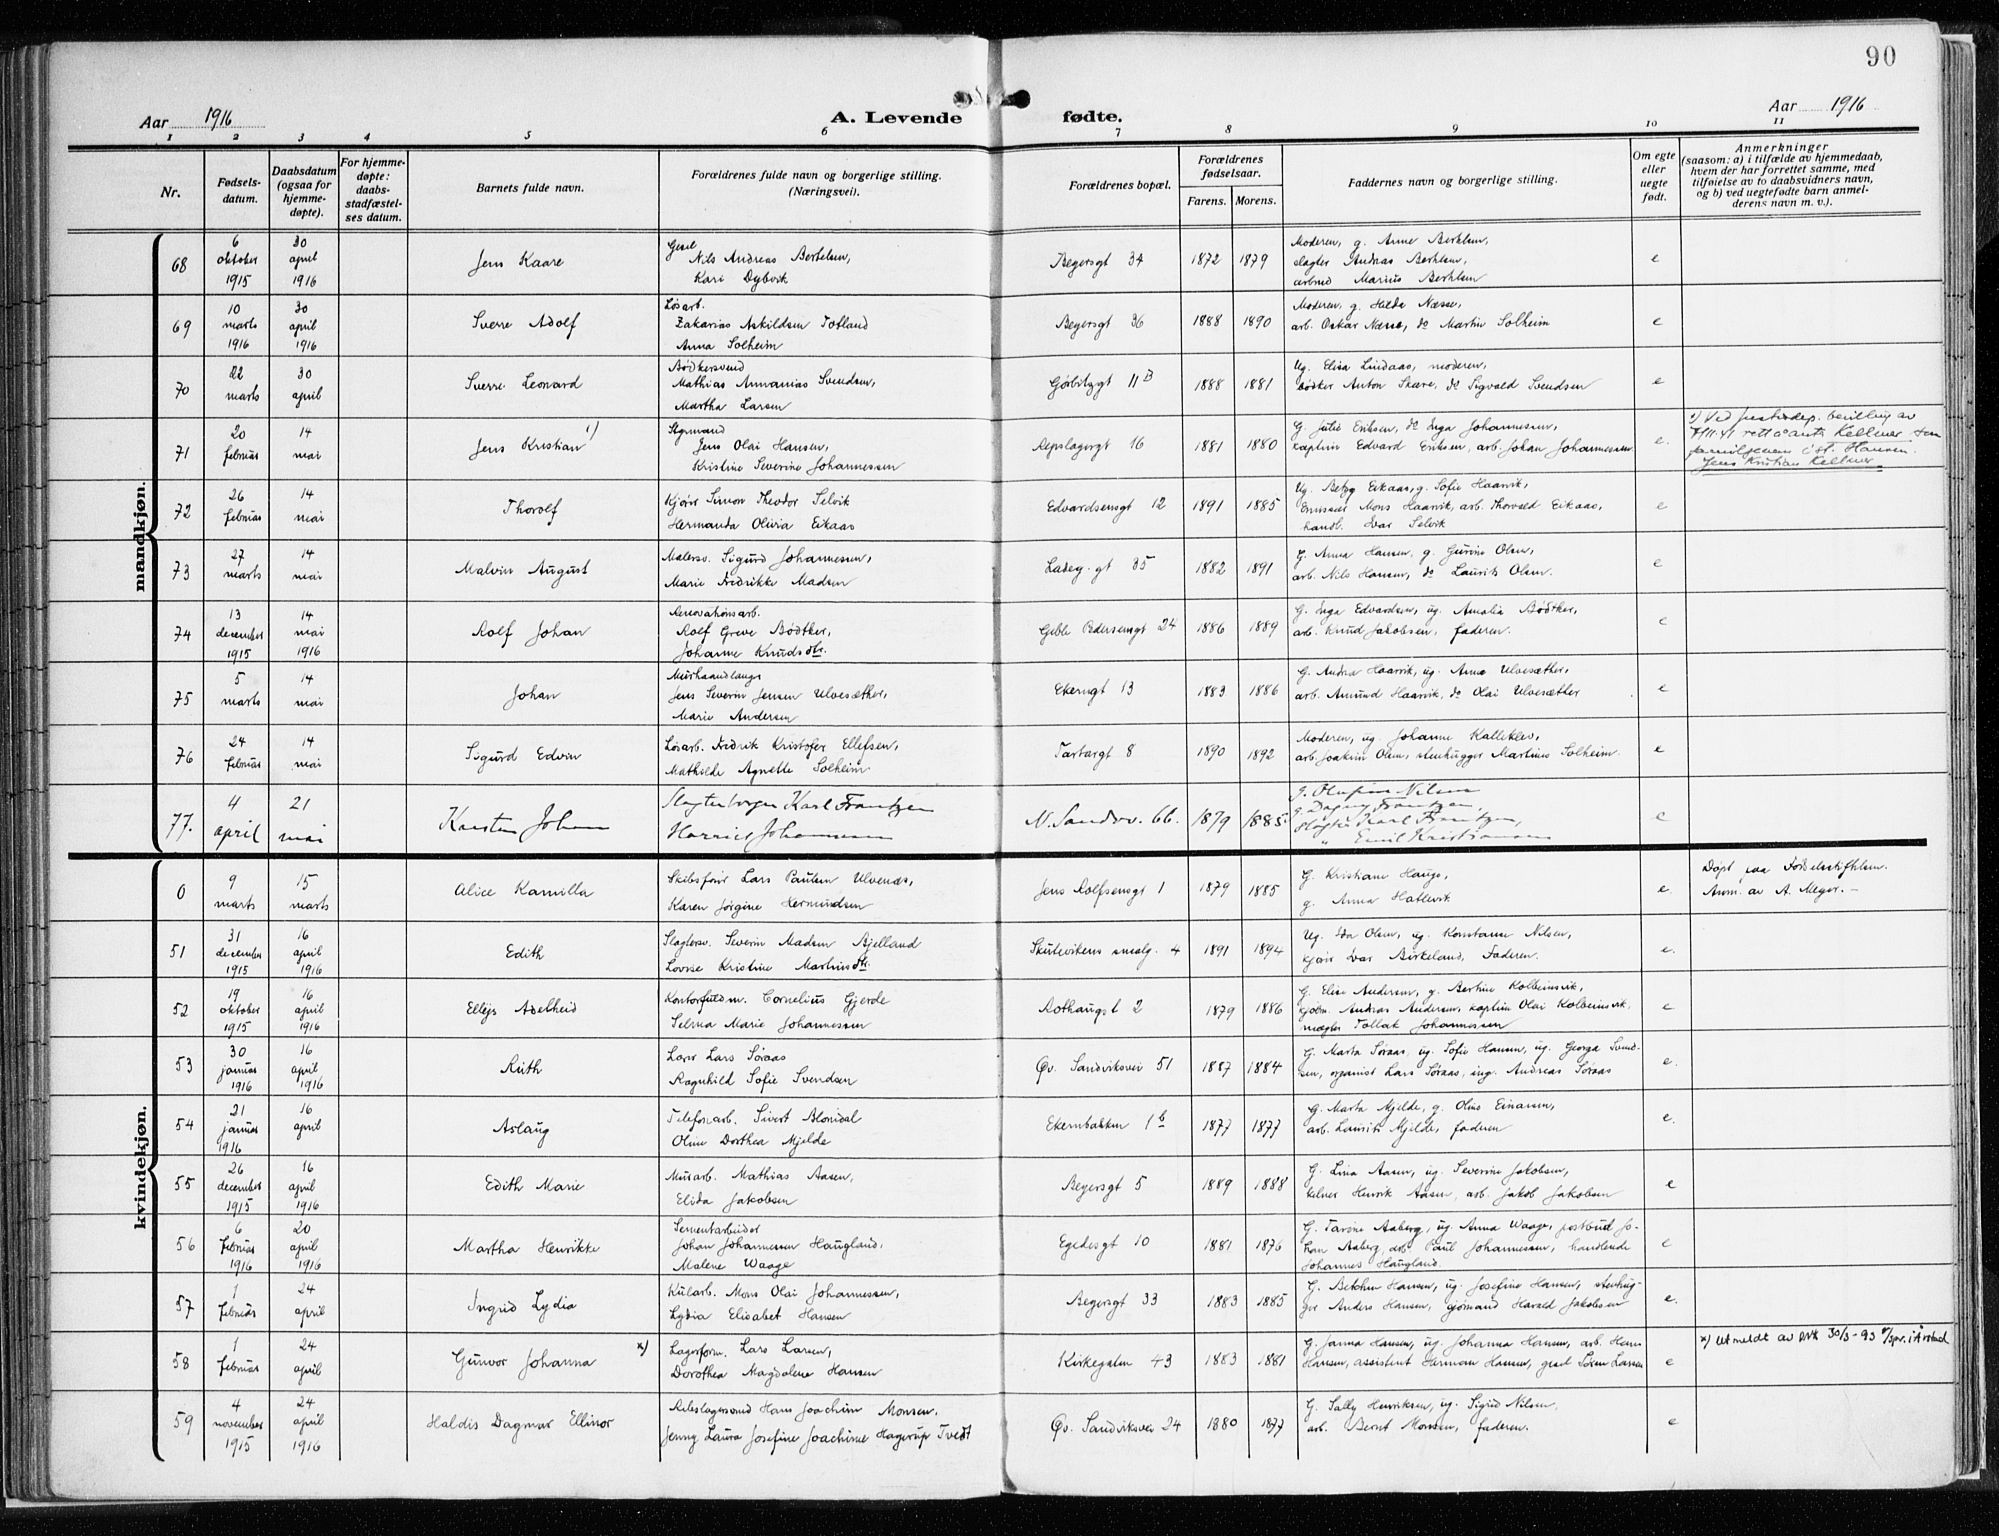 90
Aar 1916
A. Levende fødte.
Aar 1916
1 2 3 4 5 6 7 8 9 10 11
Nr.
Fødsels-
datum.
Daabsdatum
(ogsaa for
hjemme-
døpte).
For hjemme-
døpte:
daabs-
stadfæstel-
ses datum.
Barnets fulde navn.
Forældrenes fulde navn og borgerlige stilling.
(Næringsvei).
Forældrenes bopæl.
Forældrenes
fødselsaar.
Farens. Morens.
Faddernes navn og borgerlige stilling.
Om egte
eller
uegte
født.
Anmerkninger
(saasom: a) i tilfælde av hjemmedaab,
hvem der har forrettet samme, med
tilføielse av to daabsvidners navn,
og b) ved uegtefødte barn anmel-
derens navn m. v.).
mandkjøn.
68 6 oktober 1915 30 april 1916 Jens Kaare
Nils Andreas Bertelsen,
Kari Dybvik
Begersgt 34 1872 1879
Moderen, g. Anne Bertelsen,
slagter Andreas Bertelsen
Marius Bertelsen
e
69 10 marts 1916 30 april 1916 Sverre Adolf
Løsarb.
Zakarias Askildsen Totland
Anna Solheim
Begersgt 36 1888 1890
Moderen, g. Hilda Næsse,
arb. Oskar Næsse, do Martin Solheim
e
70 22 marts 30 april Sverre Leonard
Bødkersvend
Mathias Annanias Svendsen,
Martha Larsen
Gørbitzgt 11 B 1888 1881
Ug. Elisa Lindaas, moderen,
bødker Anton Skare, do Sigvald Svendsen
e
71 20 februar 14 mai Jens Kristian 1)
Styrmand
Jens Olai Hansen,
Kristine Severine Johannessen
Repslagergt 16 1881 1880
G. Julie Eriksen, do Inga Johannessen,
kaptein Edvard Eriksen, arb. Johan Johannessen
e.
1) Ved justisdep. bevilling av
7/11-41 rett å anta Kellner som
familjenavn i st. Hansen.
Jens Kristian Kellner
72 26 februar 14 mai Thorolf
Kjører Simon Theodor Selvik
Hermanda Olivia Eikaas
Edvardsensgt 12 1891 1885
Ug. Betzy Eikaas, g. Sofie Haarvik,
Mons Haarvik, arb. Thorvald Eikaas,
handl. Ivar Selvik
e
73 27 marts 14 mai Malvin August
Malersv. Sigurd Johannessen,
Marie Fredrikke Madsen
Ladeg. gt 35 1882 1891
G. Anna Hansen, g. Gurine Olsen,
arb. Nils Hansen, do Laurits Olsen.
e
74 13 december 1915 14 mai 1916 Rolf Johan
Renovationsarb.
Rolf Greve Bødtker,
Johanne Knudsdtr.
Geble Pedersensgt 24 1886 1889
G. Inga Edvardsen, ug. Amalia Bødtker,
arb. Knud Jakobsen, faderen.
e
75 5 marts 14 mai Johan
Murhaandlanger
Jens Severin Jensen Ulvesæther,
Marie Andersen
Ekerngt 13 1883 1886
G. Andrea Haarvik, ug. Anna Ulvesæther,
arb. Amund Haarvik, do Olai Ulvesæther
e
76 24 februar 14 mai Sigurd Edvin
Løsarb. Fredrik Kristofer Ellefsen,
Mathilde Agnette Solheim
Tartargt 8 1890 1892
Moderen, ug. Johanne Kalleklev,
arb. Joakim Olsen, stenhugger Martinus Solheim.
e
77. 4 april 21 mai Karsten Johan
Slagterborger Karl Frantzen
Harriet Johannessen
N. Sandv. v. 66. 1879 1885.
g. Olufine Nilsen
g. Dagny Frantzen,
Slagter Karl Frantzen,
" Emil Kristiansen
e
kvindekjøn.
0 9 marts 15 marts Alice Kamilla
Skibsfører Lars Paulsen Ulvenæs,
Karen Jørgine Hermundsen
Jens Rolfsensgt 1 1879 1885
G. Kristiane Hauge,
g. Anna Hatlevik
e.
Døpt paa Fødselsstiftelsen.
Anm. av A. Meyer. –
51 31 december 1915 16 april 1916 Edith
Slagtersv. Severin Madsen Bjelland
Lovise Kristine Martinsdtr.
Skutevikens smalg. 4 1891 1894
Ug. Ida Olsen, ug. Konstanse Nilsen,
kjører Ivar Birkeland, Faderen.
e.
52 19 oktober 1915 16 april 1916 Ellejs Adelheid
Kontorfuldm. Cornelius Gjerde
Selma Marie Johannessen
Rothaugst 2 1879 1886
G. Elise Andersen, g. Bertine Kolbeinsvik,
kjøbm. Andreas Andersen, kaptein Olai Kolbeinsvik,
mægler Tollak Johannessen
e
53 30 januar 1916 16 april 1916 Ruth
Lærer Lars Søraas
Ragnhild Sofie Svendsen
Øv. Sandviksvei 51 1887 1884
G. Marta Søraas, ug. Sofie Hansen, ug. Georga Svend-
sen, organist Lars Søraas, ing. Andreas Søraas
e.
54 21 januar 1916 16 april Aslaug
Telefonarb. Sivert Blomdal
Oline Dorthea Mjelde
Ekernbakken 1 b 1877 1877
G. Marta Mjelde, g. Oline Einarsen,
arb. Laurits Mjelde, faderen
e.
55 26 december 1915 16 april 1916 Edith Marie
Murarb. Mathias Aasen,
Elida Jakobsen
Begersgt 5 1889 1888
G. Lina Aasen, ug. Severine Jakobsen,
kelner Henrik Aasen, arb. Jakob Jakobsen
e
56 6 februar 1916 20 april 1916 Martha Henrikke
Sementarbeider
Johan Johannessen Haugland,
Malene Waage
Egedesgt 10 1881 1876
G. Tarine Aaberg, ug. Anna Waage, postbud Jo-
han Aaberg, arb. Paul Johannessen, handlende
Johannes Haugland.
e
57 1 februar 24 april Ingrid Lydia
Kularb. Mons Olai Johannessen,
Lydia Elisabet Hansen
Begersgt 33 1883 1885
G. Betchen Hansen, ug. Josefine Hansen, stenhug-
ger Anders Hansen, gjørmand Harald Jakobsen
e.
58 1 februar 24 april Gunvor Johanna x)
Lagerform. Lars Larsen,
Dorothea Magdalene Hansen
Kirkegaten 43 1883 1881
G. Janna Hansen, ug. Johanna Hansen, arb. Hans
Hansen, assistent Herman Hansen, Søren Larsen
e
x) Utmeldt av DNK 30/3-93 i Årstad
59 4 november 1915 24 april 1916 Haldis Dagmar Ellinor
Rebslagersvend Hans Joachim Monsen,
Jenny Laura Josefine Joachime Hagerup Tvedt
Øv. Sandviksvei 24 1880 1877
G. Sally Henriksen, ug. Sigrid Nilsen,
arb. Bernt Monsen, faderen.
e